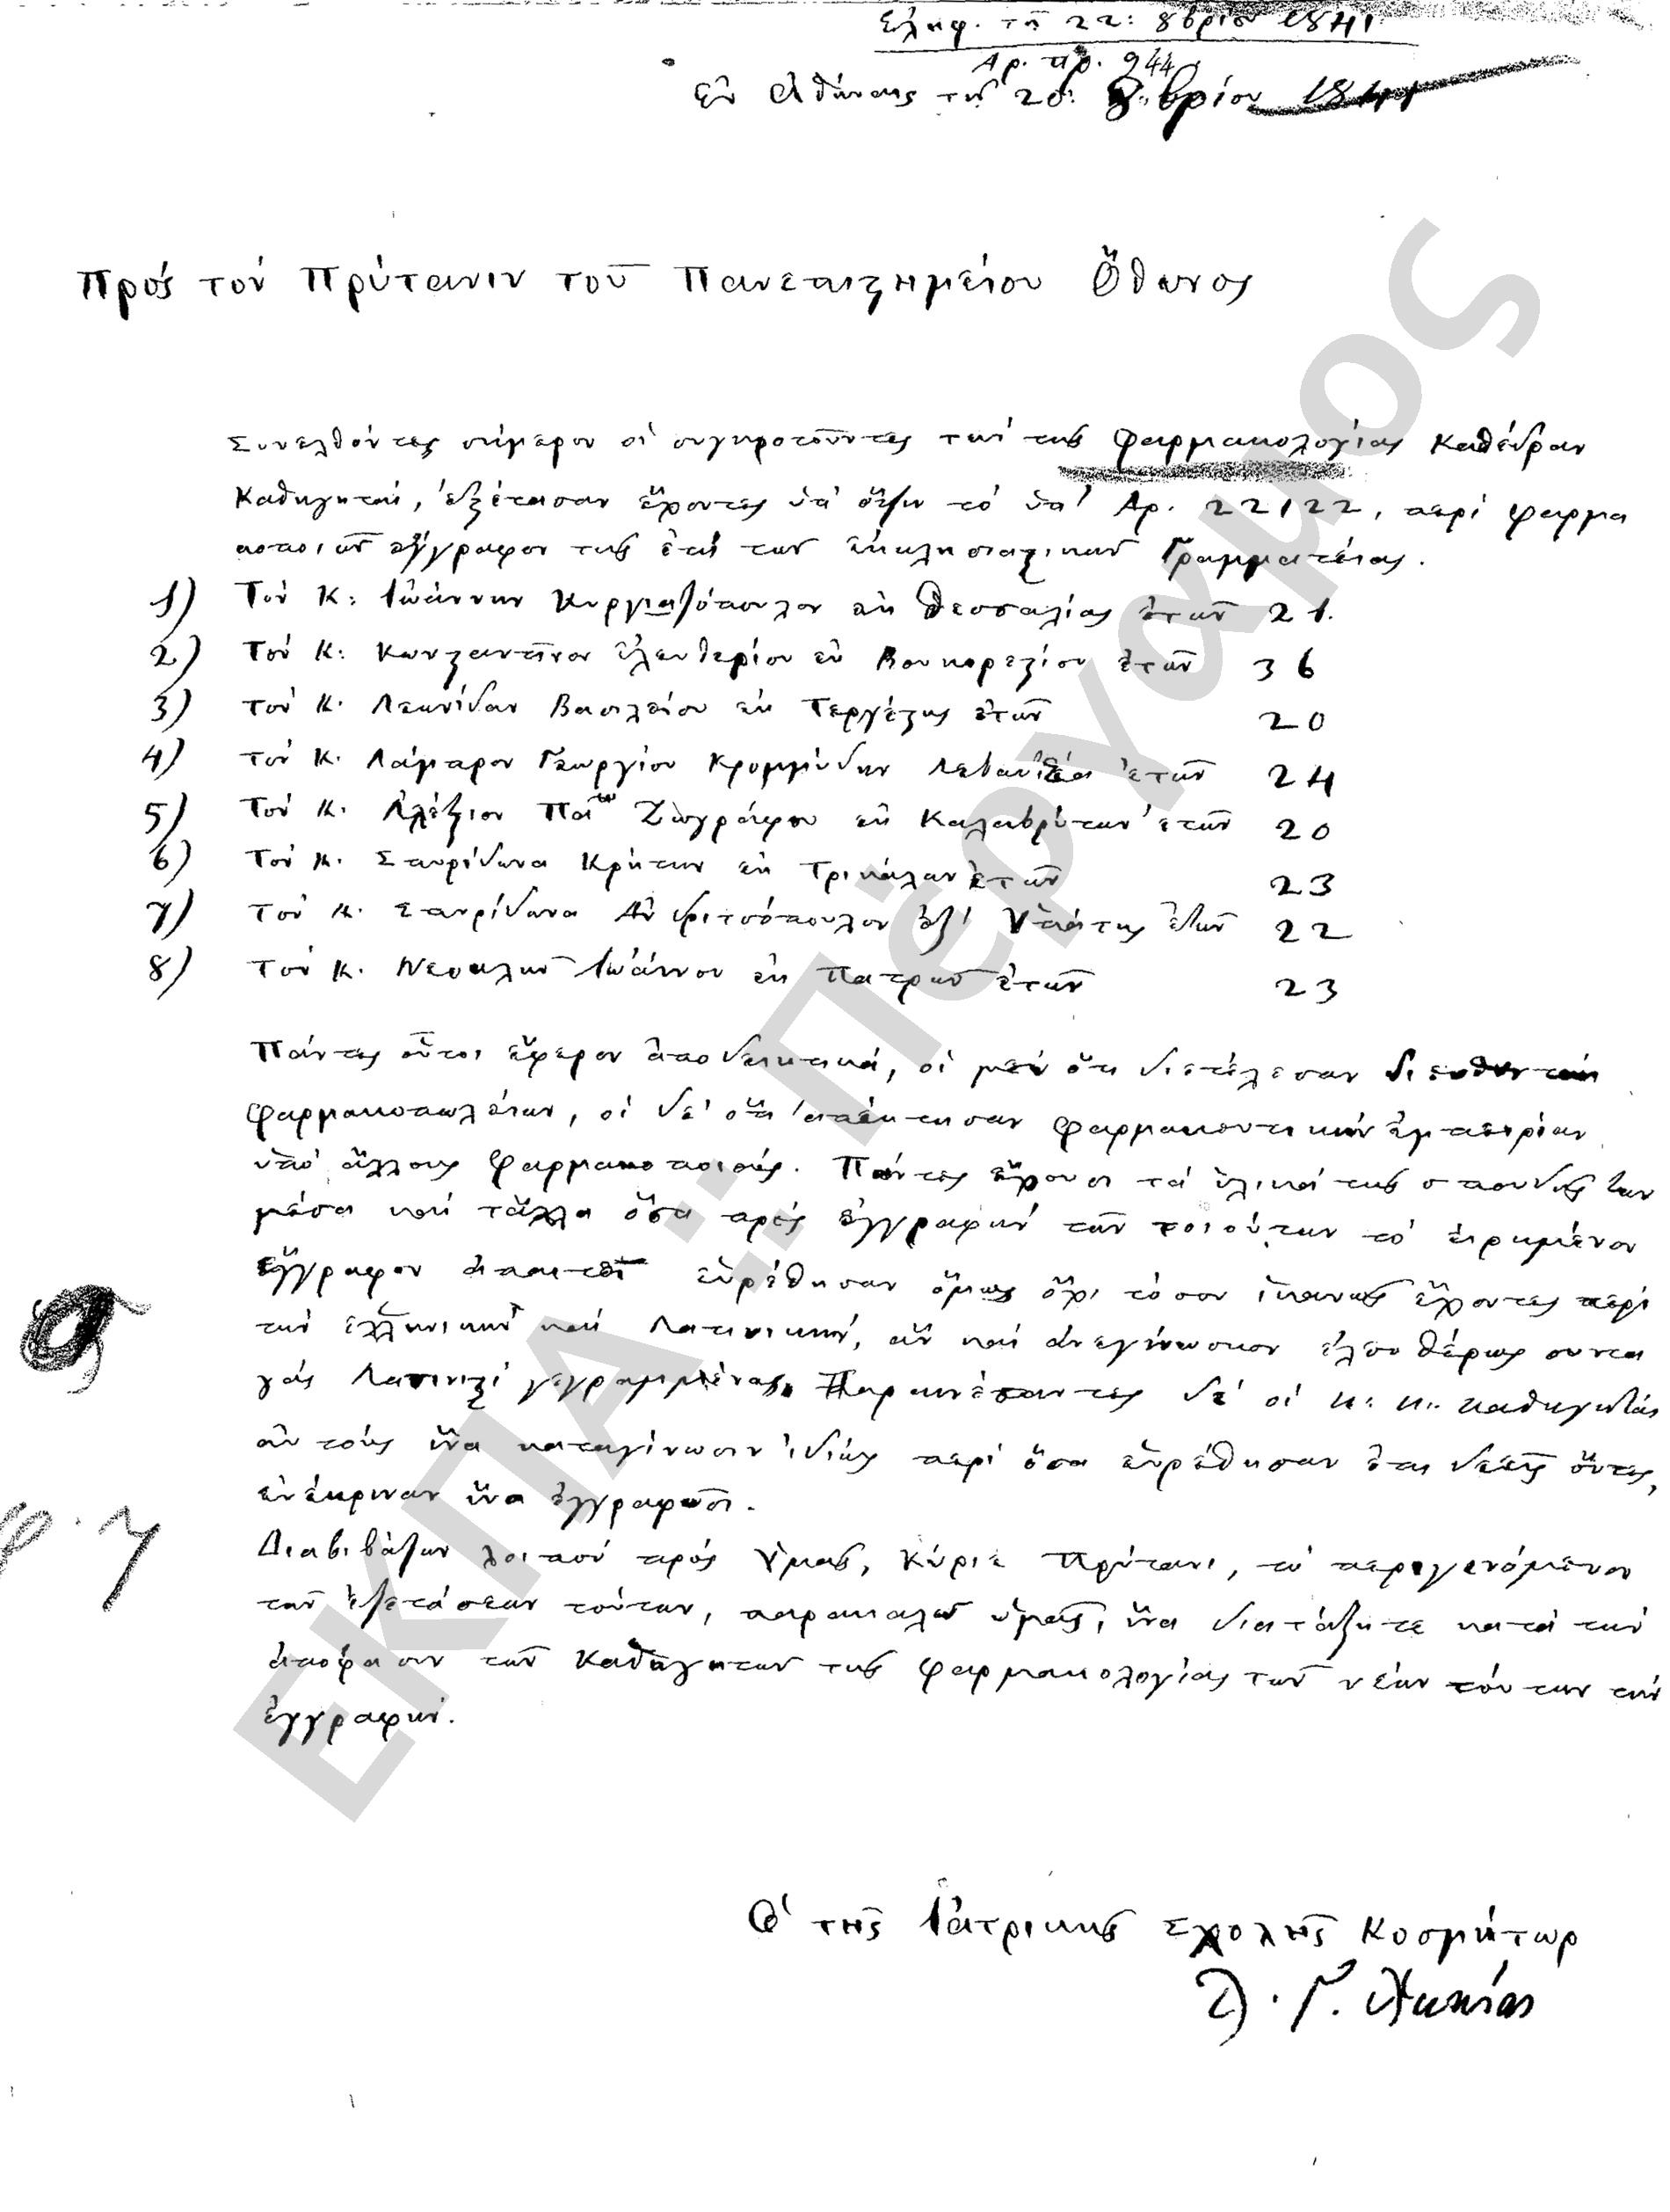 Ἐλήφ. τῇ 22: 8βρίου 1841
Ἀρ. πρ. 944
Ἐν Ἀθήναις τῇ 20: 8βρίου 1841
Πρός τόν Πρύτανιν τοῦ Πανεπιστημείου Ὄθωνος
Συνελθόντες σήμερον οἱ συγκροτοῦντες τήν τῆς φαρμακολογίας Καθέδραν
Καθηγηταί, ἐξέτασαν ἔχοντες ὑπ' ὄψιν τό ὑπ' Ἀρ. 22122, περί φαρμα
κοποιῶν ἔγγραφον τῆς ἐπί τῶν ἐκκλησιαστικῶν Γραμματείας.
1) Τόν Κ: Ἰωάννην Κυργιαζόπουλον ἐκ Θεσσαλίας ἐτῶν 21.
2) Τόν Κ: Κωνσταντῖνον Ἐλευθερίου ἐκ Βουκορεστίου ἐτῶν 36
3) τόν Κ. Λεωνίδαν Βασιλείου ἐκ Τεργέστης ἐτῶν 20
4) τόν Κ. Λάμπρον Γεωργίου Κρομμύδην ἐτῶν 24
5) Τόν Κ. Ἀλέξιον Ζωγράφου ἐκ Καλαβρύτων ἐτῶν 20
6) Τόν Κ. Σπυρίδωνα Κρήτην ἐκ Τρικάλων ἐτῶν 23
7) Τόν Κ. Σπυρίδωνα Ἀνδριτσόπουλον ἐξ Ὑπάτης ἐτῶν 22
8) Τόν Κ. Ἰωάννου ἐκ Πατρῶν ἐτῶν 23
Πάντες οὗτοι ἔφερον ἀποδεικτικά, οἱ μέν ὅτι διετέλεσαν διευθυνταί
φαρμακοπωλείων, οἱ δέ ὅτι ἀπέκτησαν φαρμακευτικήν ἐμπειρίαν
ὑπό ἄλλους φαρμακοποιούς. Πάντες ἔχουσι τά ὑλικά τῆς σπουδῆς των
μέσα καί τἄλλα ὅσα πρός ἐγγραφήν τῶν τοιούτων τό εἰρημένον
ἔγγραφον ἀπαιτεῖ εὑρέθησαν ὅμως ὄχι τόσον ἱκανῶς ἔχοντες περί
τήν ἑλληνικήν καί Λατινικήν, ἄν καί ἀνεγίνωσκον ἐλευθέρως συντα
γάς Λατινιστί γεγραμμένας. Παραινέσαντες δέ οἱ κ: κ: καθηγηταί
αὐτούς ἵνα καταγίνωσιν ἰδίως περί ὅσα εὑρέθησαν ἔτι δεεῖς ὄντες,
ἐνέκριναν ἵνα ἐγγραφῶσι.
Διαβιβάζων λοιπόν πρός Ὑμᾶς, Κύριε Πρύτανι, τό περιγενόμενον
τῶν ἐξετάσεων τούτων, παρακαλῶ ὑμᾶς, ἵνα διατάξητε κατά τήν
ἀπόφασιν τῶν Καθηγητῶν τῆς φαρμακολογίας τῶν νέων τούτων τήν
ἐγγραφήν.
Ὁ τῆς Ἰατρικῆς Σχολῆς Κοσμήτωρ
ΕΚΠΑ :: Πέργαμος